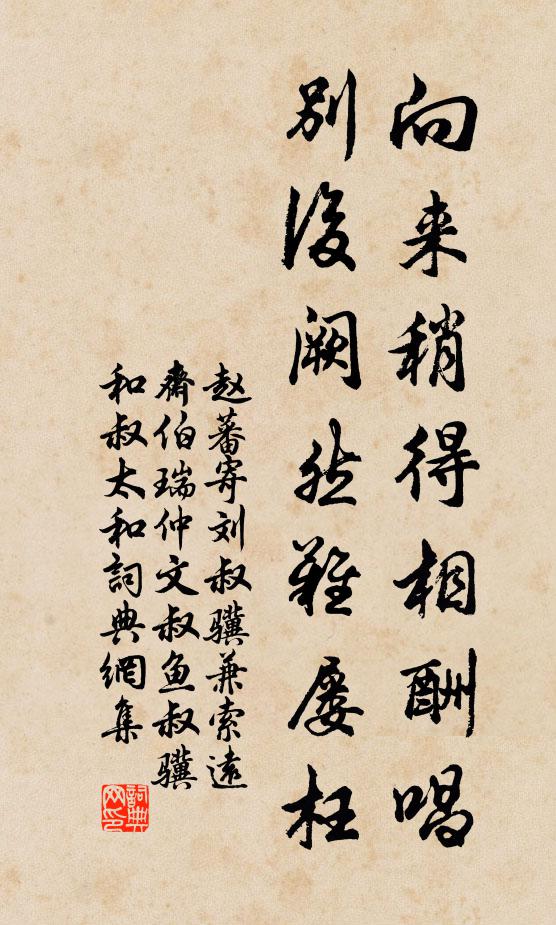 向来稍得相酬唱
别後阙然难屡枉
赵蕃寄刘叔骥兼索远
斋伯瑞仲文叔鱼叔骥
和叔太和詞典網集
詞典
网印